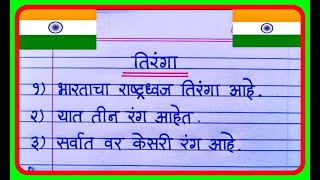 तिरंगा
१) भारताचा राष्ट्रध्वज तिरंगा आहे.
२) यात तीन रंग आहेत.
३) सर्वात वर केसरी रंग आहे.